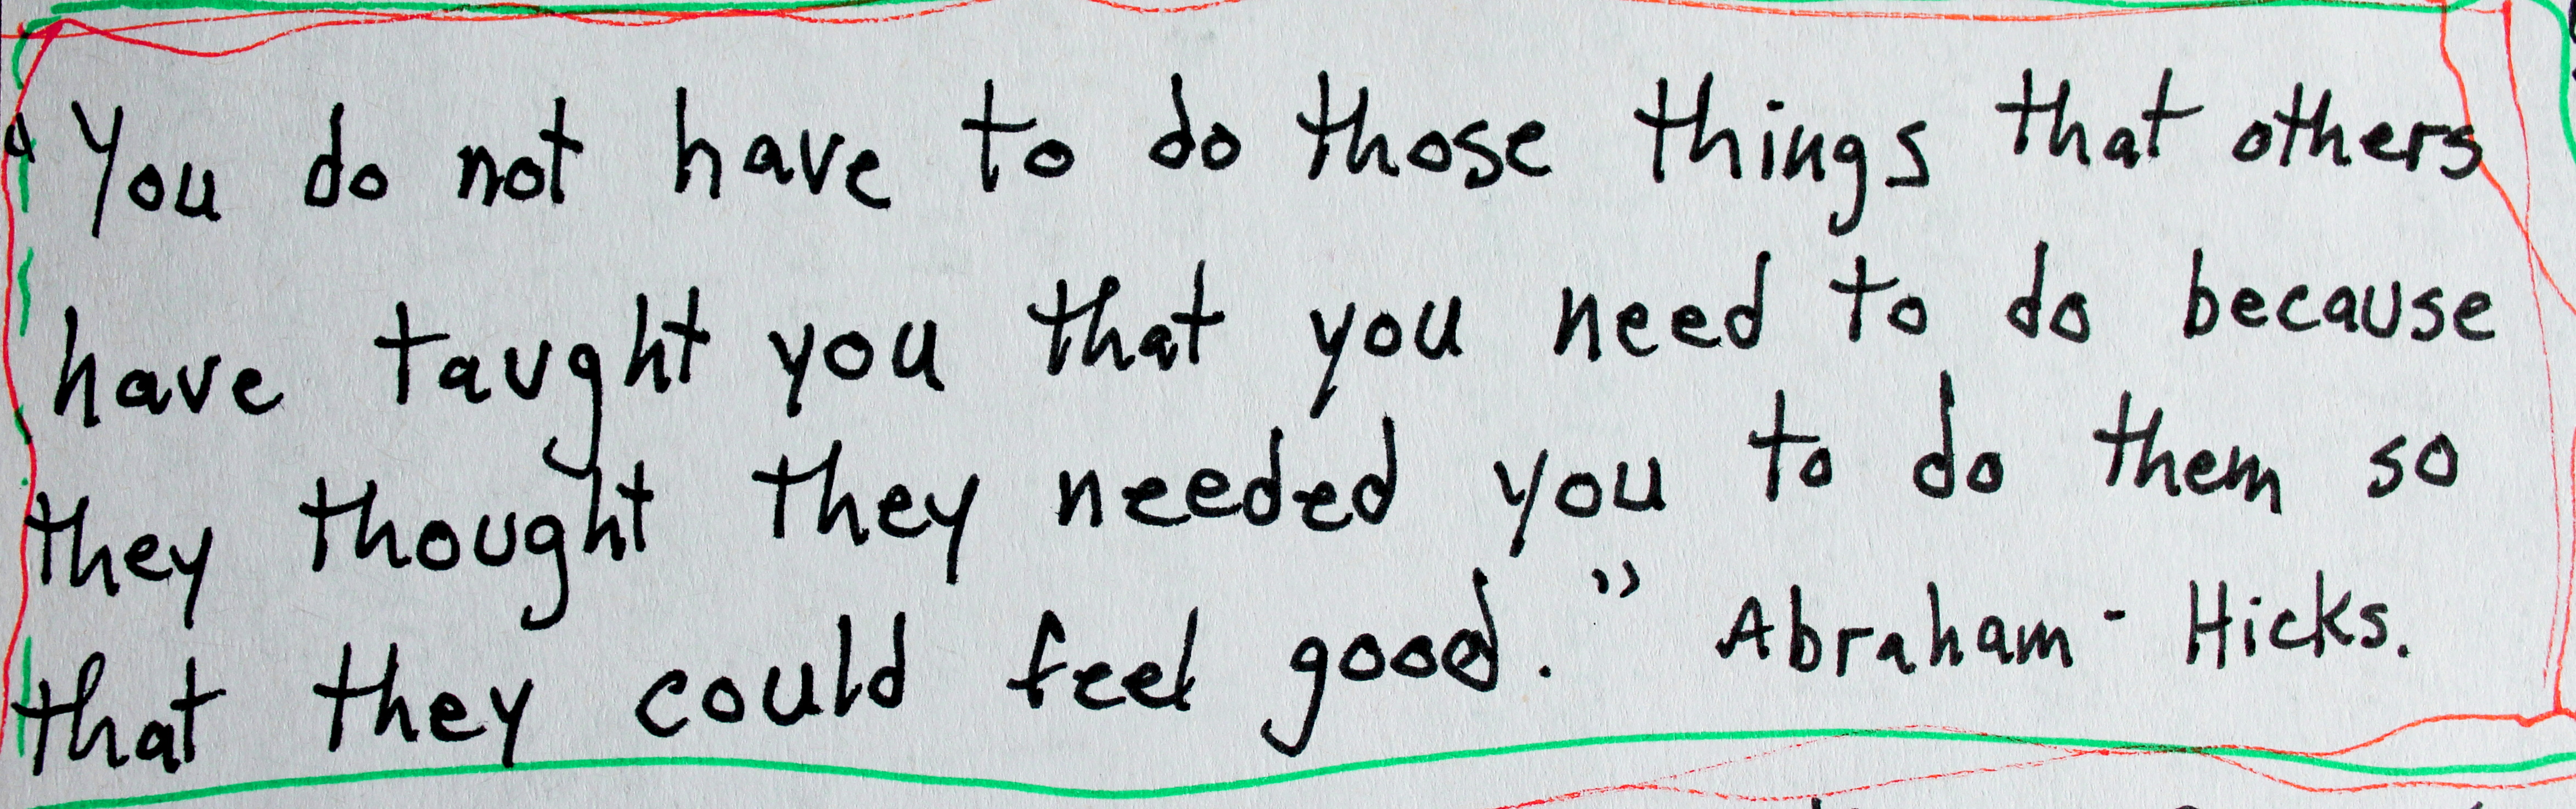 "You do not have to do those things that others
have taught you that you need to do because
they thought they needed you to do them so
that they could feel good." Abraham - Hicks.